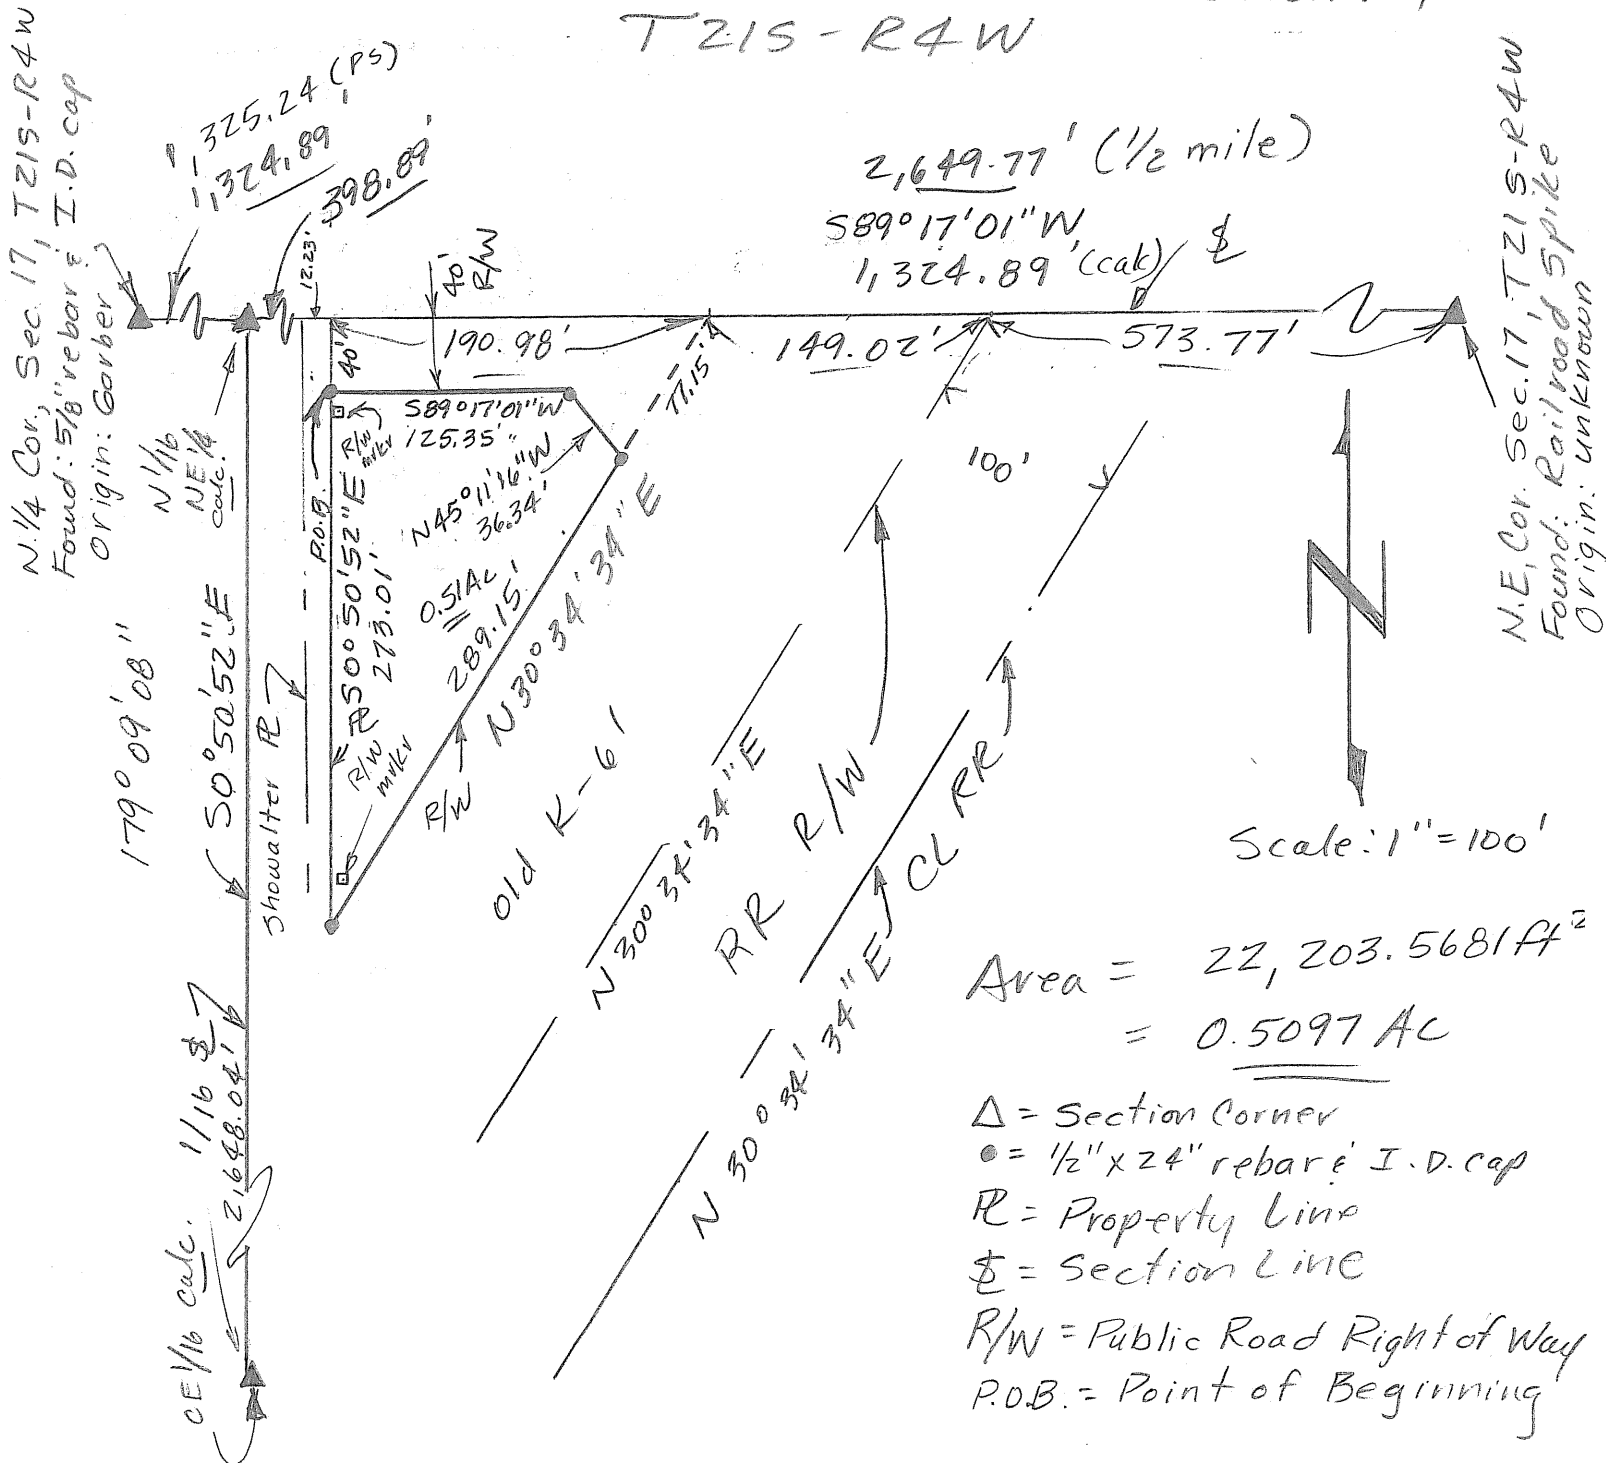 T21S-R4W
N.1/4 Cor., Sec. 17, T21S-R4W
Found: 5/8" rebar & I.D. cap
Origin: Garber
1,325.24 (PS)
1,324.89'
398.89'
12.23'
40'
R/W
2,649.77' (1/2 mile)
S89°17'01"W
1,324.89' (calc)
N.E. Cor. Sec. 17, T21S-R4W
Found: Railroad Spike
Origin: unknown
190.98'
149.02'
573.77'
40'
77.15'
N 1/16
NE 1/4
calc.
P.O.B.
R/W
mrkr
S89°17'01"W
125.35'
N45°11'16"W
36.34'
S0°50'52"E
273.01'
0.51Ac
289.15'
N30°34'34"E
100'
179°09'08"
S0°50'52"E
Showalter PL
PL
R/W
mrkr
R/W
Old K-61
N30°34'34"E
RR R/W
CL RR
N30°34'34"E
N 30°34'34"E
1/16 SL
2,648.04'
CE 1/16 calc.
N
Scale: 1"=100'
Area = 22,203.5681 ft²
= 0.5097 AC
Δ = Section Corner
● = 1/2" x 24" rebar & I.D. cap
PL = Property Line
SL = Section Line
R/W = Public Road Right of Way
P.O.B. = Point of Beginning